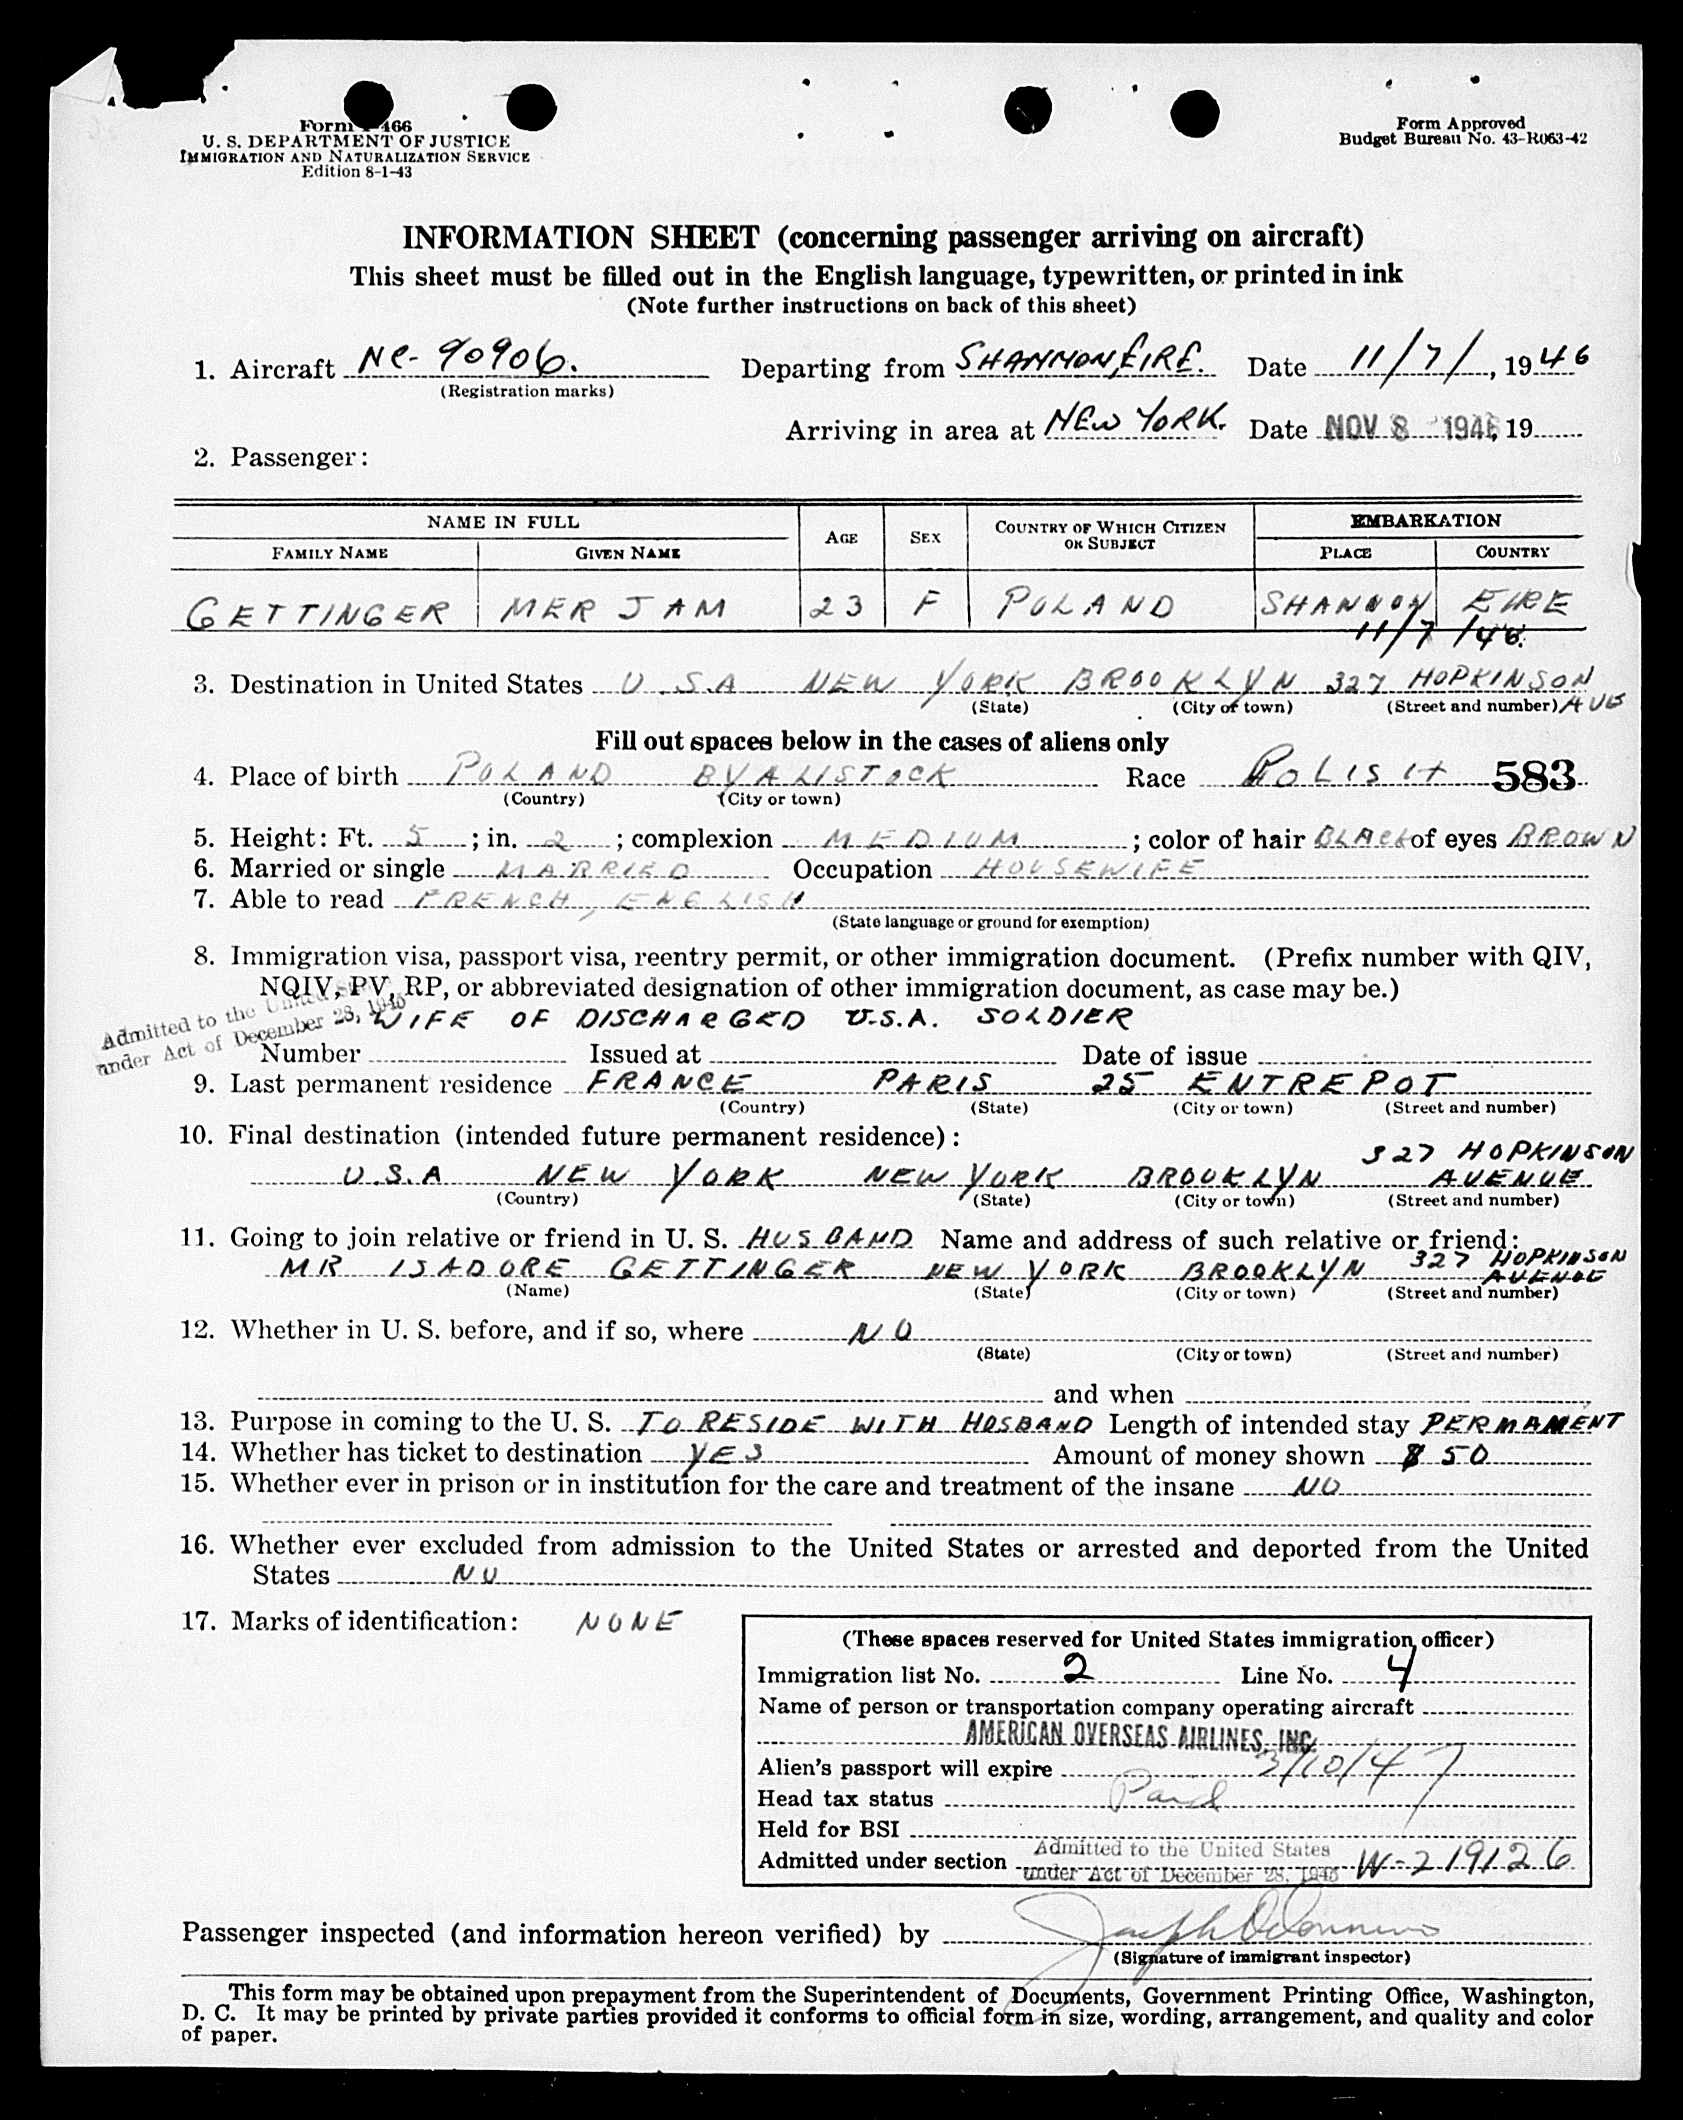 Form I-466
U. S. DEPARTMENT OF JUSTICE
IMMIGRATION AND NATURALIZATION SERVICE
Edition 8-1-43
Form Approved
Budget Bureau No. 43-R063-42
INFORMATION SHEET (concerning passenger arriving on aircraft)
This sheet must be filled out in the English language, typewritten, or printed in ink
(Note further instructions on back of this sheet)
1. Aircraft NC-90906. Departing from SHANNON, EIRE. Date 11/7/, 1946
(Registration marks)
Arriving in area at NEW YORK. Date NOV 8 1946, 19
2. Passenger:
NAME IN FULL AGE SEX COUNTRY OF WHICH CITIZEN OR SUBJECT EMBARKATION
FAMILY NAME GIVEN NAME PLACE COUNTRY
GETTINGER MERJAM 23 F POLAND SHANNON EIRE
11/7/46.
3. Destination in United States U.S.A NEW YORK BROOKLYN 327 HOPKINSON AVE
(State) (City or town) (Street and number)
Fill out spaces below in the cases of aliens only
4. Place of birth POLAND BYALISTOCK Race POLISH 583
(Country) (City or town)
5. Height: Ft. 5; in. 2; complexion MEDIUM; color of hair BLACK of eyes BROWN
6. Married or single MARRIED Occupation HOUSEWIFE
7. Able to read FRENCH, ENGLISH
(State language or ground for exemption)
8. Immigration visa, passport visa, reentry permit, or other immigration document. (Prefix number with QIV,
NQIV, PV, RP, or abbreviated designation of other immigration document, as case may be.)
Admitted to the United States
under Act of December 28, 1945
WIFE OF DISCHARGED U.S.A. SOLDIER
Number Issued at Date of issue
9. Last permanent residence FRANCE PARIS 25 ENTREPOT
(Country) (State) (City or town) (Street and number)
10. Final destination (intended future permanent residence):
327 HOPKINSON
U.S.A NEW YORK NEW YORK BROOKLYN AVENUE
(Country) (State) (City or town) (Street and number)
11. Going to join relative or friend in U. S. HUSBAND Name and address of such relative or friend:
MR ISADORE GETTINGER NEW YORK BROOKLYN 327 HOPKINSON AVENUE
(Name) (State) (City or town) (Street and number)
12. Whether in U. S. before, and if so, where NO
(State) (City or town) (Street and number)
and when
13. Purpose in coming to the U. S. TO RESIDE WITH HUSBAND Length of intended stay PERMAMENT
14. Whether has ticket to destination YES Amount of money shown $ 50
15. Whether ever in prison or in institution for the care and treatment of the insane NO
16. Whether ever excluded from admission to the United States or arrested and deported from the United
States NO
17. Marks of identification: NONE
(These spaces reserved for United States immigration officer)
Immigration list No. 2 Line No. 4
Name of person or transportation company operating aircraft
AMERICAN OVERSEAS AIRLINES, INC.
Alien's passport will expire 3/10/47
Head tax status Paid
Held for BSI
Admitted under section Admitted to the United States
under Act of December 28, 1945 W-219126
Passenger inspected (and information hereon verified) by
(Signature of immigrant inspector)
This form may be obtained upon prepayment from the Superintendent of Documents, Government Printing Office, Washington,
D. C. It may be printed by private parties provided it conforms to official form in size, wording, arrangement, and quality and color
of paper.